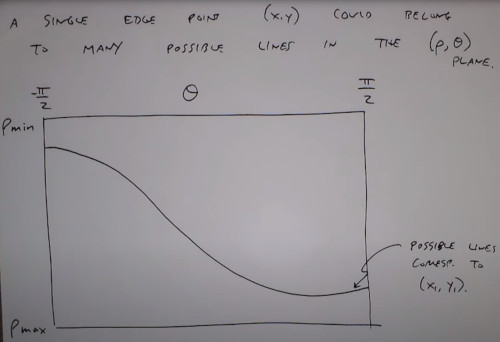 A SINGLE EDGE POINT (x,y) COULD BELONG
TO MANY POSSIBLE LINES IN THE (ρ, θ)
PLANE.
-π/2 θ π/2
ρmin
POSSIBLE LINES
CORRESP. TO
(x₁, y₁).
ρmax